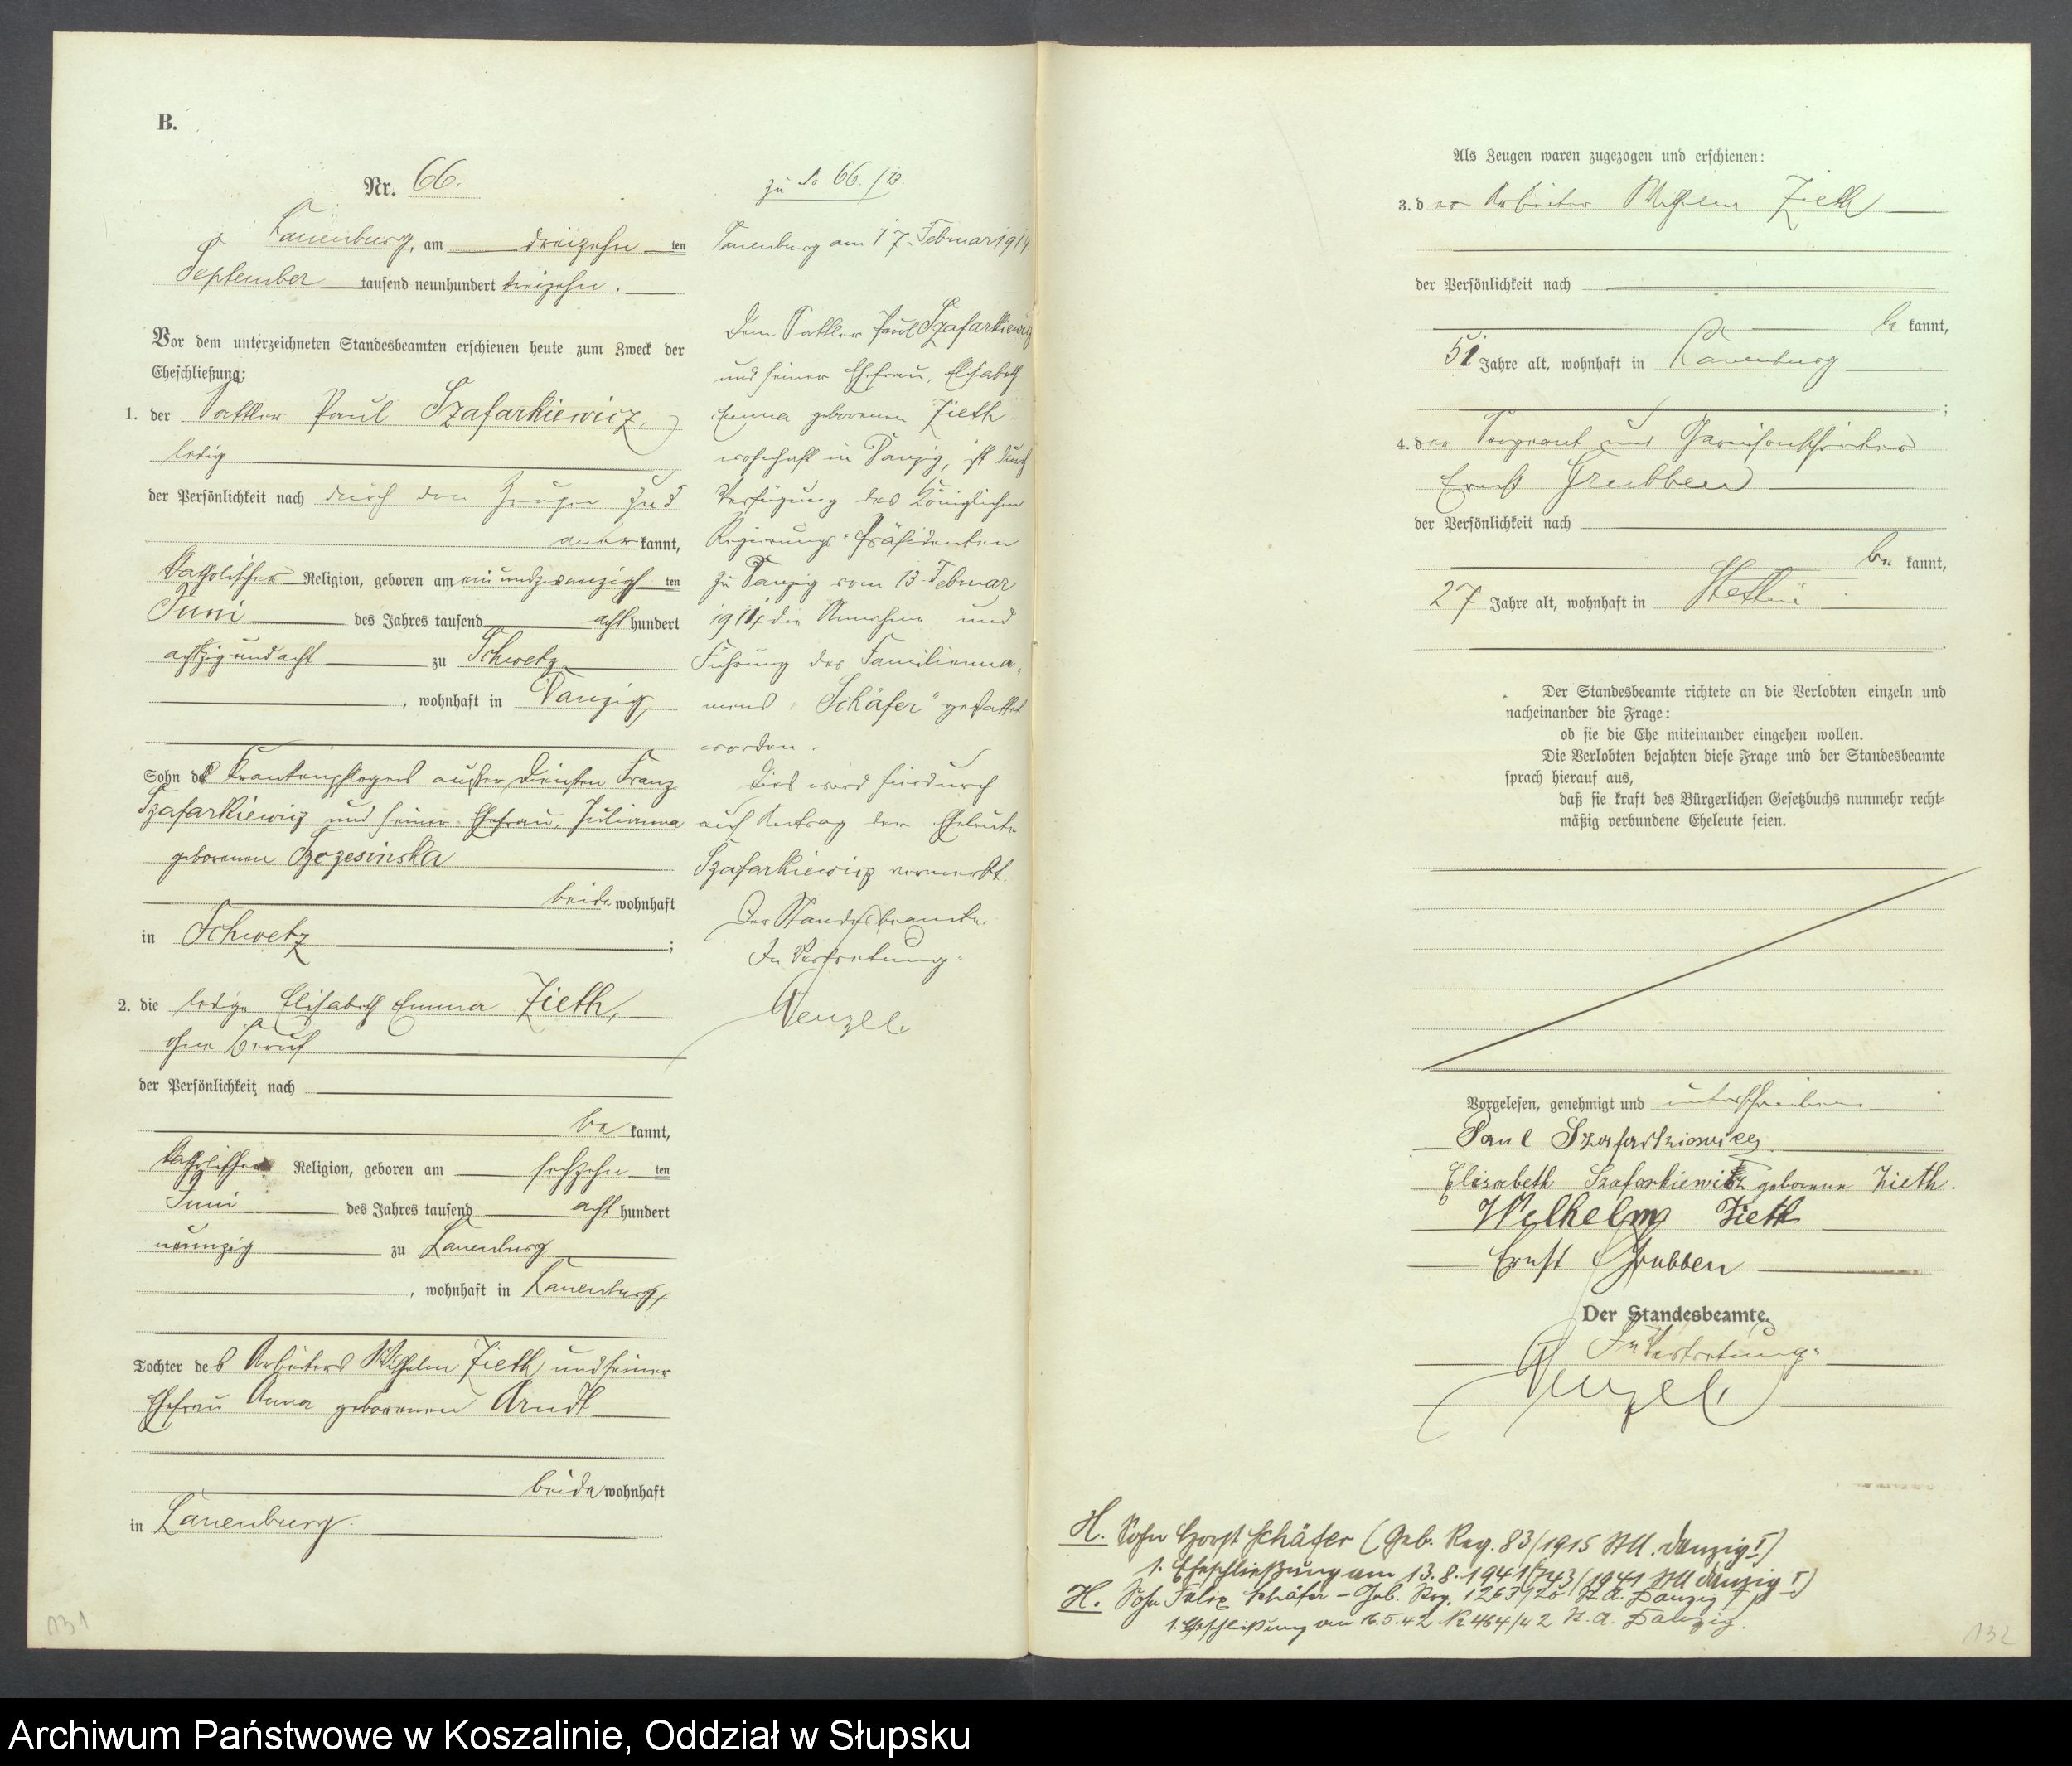 B.
Nr. 66.
Lauenburg, am dreizehn ten
September tausend neunhundert dreizehn.
Vor dem unterzeichneten Standesbeamten erschienen heute zum Zweck der
Eheschließung:
1. der Sattler Paul Szafarkiewicz,
ledig
der Persönlichkeit nach durch den Zeugen zu 3
anerkannt,
katholischer Religion, geboren am einundzwanzigsten
Juni des Jahres tausend achthundert
achtzig und acht zu Schwetz
, wohnhaft in Danzig,
Sohn des Krankenpflegers außer Diensten Franz
Szafarkiewicz und seiner Ehefrau, Julianna
geborenen
beide wohnhaft
in Schwetz ;
2. die ledige Elisabeth Emma Zieth,
ohne Beruf
der Persönlichkeit nach
bekannt,
katholischer Religion, geboren am sechzehn ten
Juni des Jahres tausend achthundert
neunzig zu Lauenburg
, wohnhaft in Lauenburg,
Tochter des Arbeiters Wilhelm Zieth und seiner
Ehefrau Anna geborenen Arndt
beide wohnhaft
in Lauenburg.
zu No 66./13.
Lauenburg am 17. Februar 1914.
Dem Sattler Paul Szafarkiewicz
und seiner Ehefrau, Elisabeth
Emma geborenen Zieth
wohnhaft in Danzig, ist durch
Verfügung des Königlichen
Regierungs-Präsidenten
zu Danzig vom 13. Februar
1914 die Annahme und
Führung des Familienna-
mens „Schäfer" gestattet
worden.
Dies wird hierdurch
auf Antrag der Eheleute
Szafarkiewicz vermerkt.
Der Standesbeamte.
In Vertretung.
Wenzel.
131
Als Zeugen waren zugezogen und erschienen:
3. der Arbeiter Wilhelm Zieth
der Persönlichkeit nach
bekannt,
51 Jahre alt, wohnhaft in Lauenburg
;
4. der Sergeant und Garnisonschreiber
Ernst Grubben
der Persönlichkeit nach
bekannt,
27 Jahre alt, wohnhaft in Stettin
Der Standesbeamte richtete an die Verlobten einzeln und
nacheinander die Frage:
ob sie die Ehe miteinander eingehen wollen.
Die Verlobten bejahten diese Frage und der Standesbeamte
sprach hierauf aus,
daß sie kraft des Bürgerlichen Gesetzbuchs nunmehr recht-
mäßig verbundene Eheleute seien.
Vorgelesen, genehmigt und unterschrieben
Paul Szafarkiewicz
Elisabeth Szafarkiewicz geborene Zieth.
Wilhelm Zieth
Ernst Grubben
Der Standesbeamte.
In Vertretung.
Wenzel.
H. Sohn Horst Schäfer (Geb. Reg. 83/1915 StA. Danzig I)
1. Eheschließung am 13.8.1941 (743/1941 StA Danzig I)
H. Sohn Felix Schäfer - Geb. Reg. 1263/20 St. A. Danzig I
1. Eheschließung am 16.5.42 Nr 464/42 St. A. Danzig.
132
Archiwum Państwowe w Koszalinie, Oddział w Słupsku